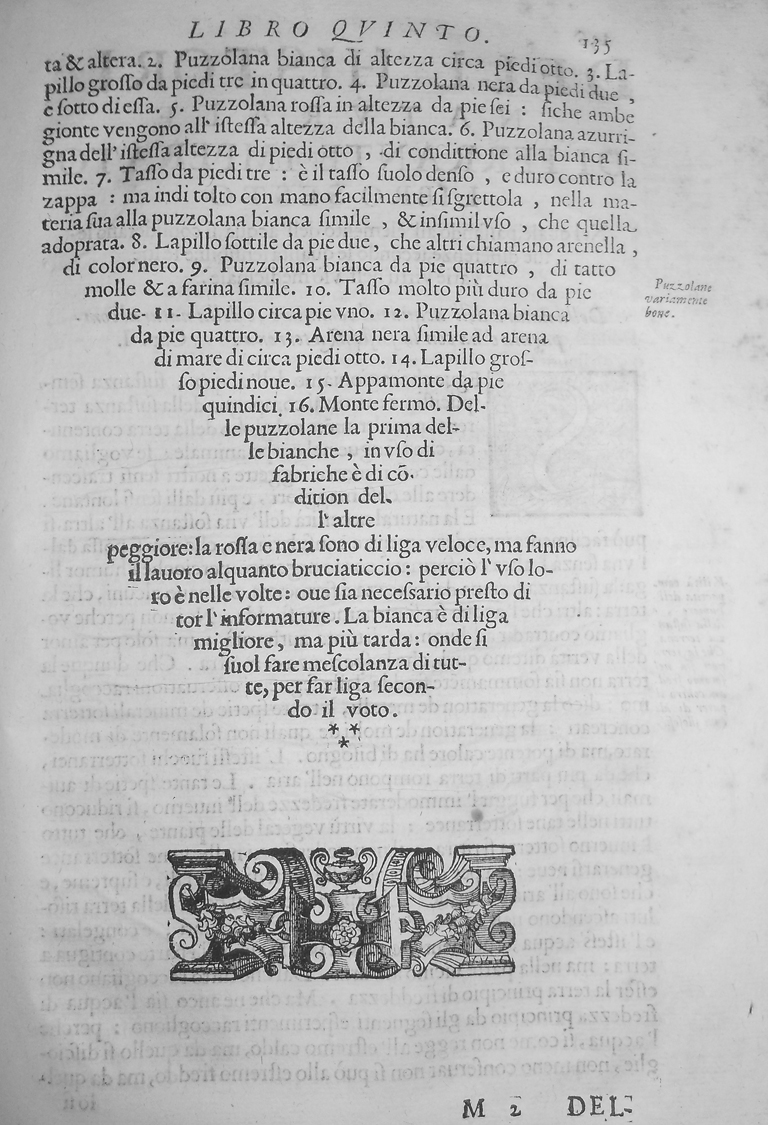 LIBRO QVINTO. 135
ta & altera. 2. Puzzolana bianca di altezza circa piedi otto. 3. La-
pillo groſſo da piedi tre in quattro. 4. Puzzolana nera da piedi due,
e ſotto di eſſa. 5. Puzzolana roſſa in altezza da pie ſei : ſiche ambe
gionte vengono all' iſteſſa altezza della bianca. 6. Puzzolana azurri-
gna dell' iſteſſa altezza di piedi otto , di condittione alla bianca ſi-
mile. 7. Taſſo da piedi tre : è il taſſo ſuolo denſo , e duro contro la
zappa : ma indi tolto con mano facilmente ſi ſgrettola , nella ma-
teria ſua alla puzzolana bianca ſimile , & in ſimil vſo , che quella
adoprata. 8. Lapillo ſottile da pie due, che altri chiamano arenella ,
di color nero. 9. Puzzolana bianca da pie quattro , di tatto
molle & a farina ſimile. 10. Taſſo molto più duro da pie
due. 11. Lapillo circa pie vno. 12. Puzzolana bianca
da pie quattro. 13. Arena nera ſimile ad arena
di mare di circa piedi otto. 14. Lapillo groſ-
ſo piedi noue. 15. Appamonte da pie
quindici. 16. Monte fermo. Del-
le puzzolane la prima del-
le bianche , in vſo di
fabriche è di cō-
dition del-
l' altre
peggiore: la roſſa e nera ſono di liga veloce, ma fanno
il lauoro alquanto bruciaticcio : perciò l' vſo lo-
ro è nelle volte: oue ſia neceſsario preſto di
tor l' informature . La bianca è di liga
migliore, ma più tarda : onde ſi
ſuol fare meſcolanza di tut-
te, per far liga ſecon-
do il voto.
* *
*
Puzzolane
variamente
bone.
M 2 DEL-